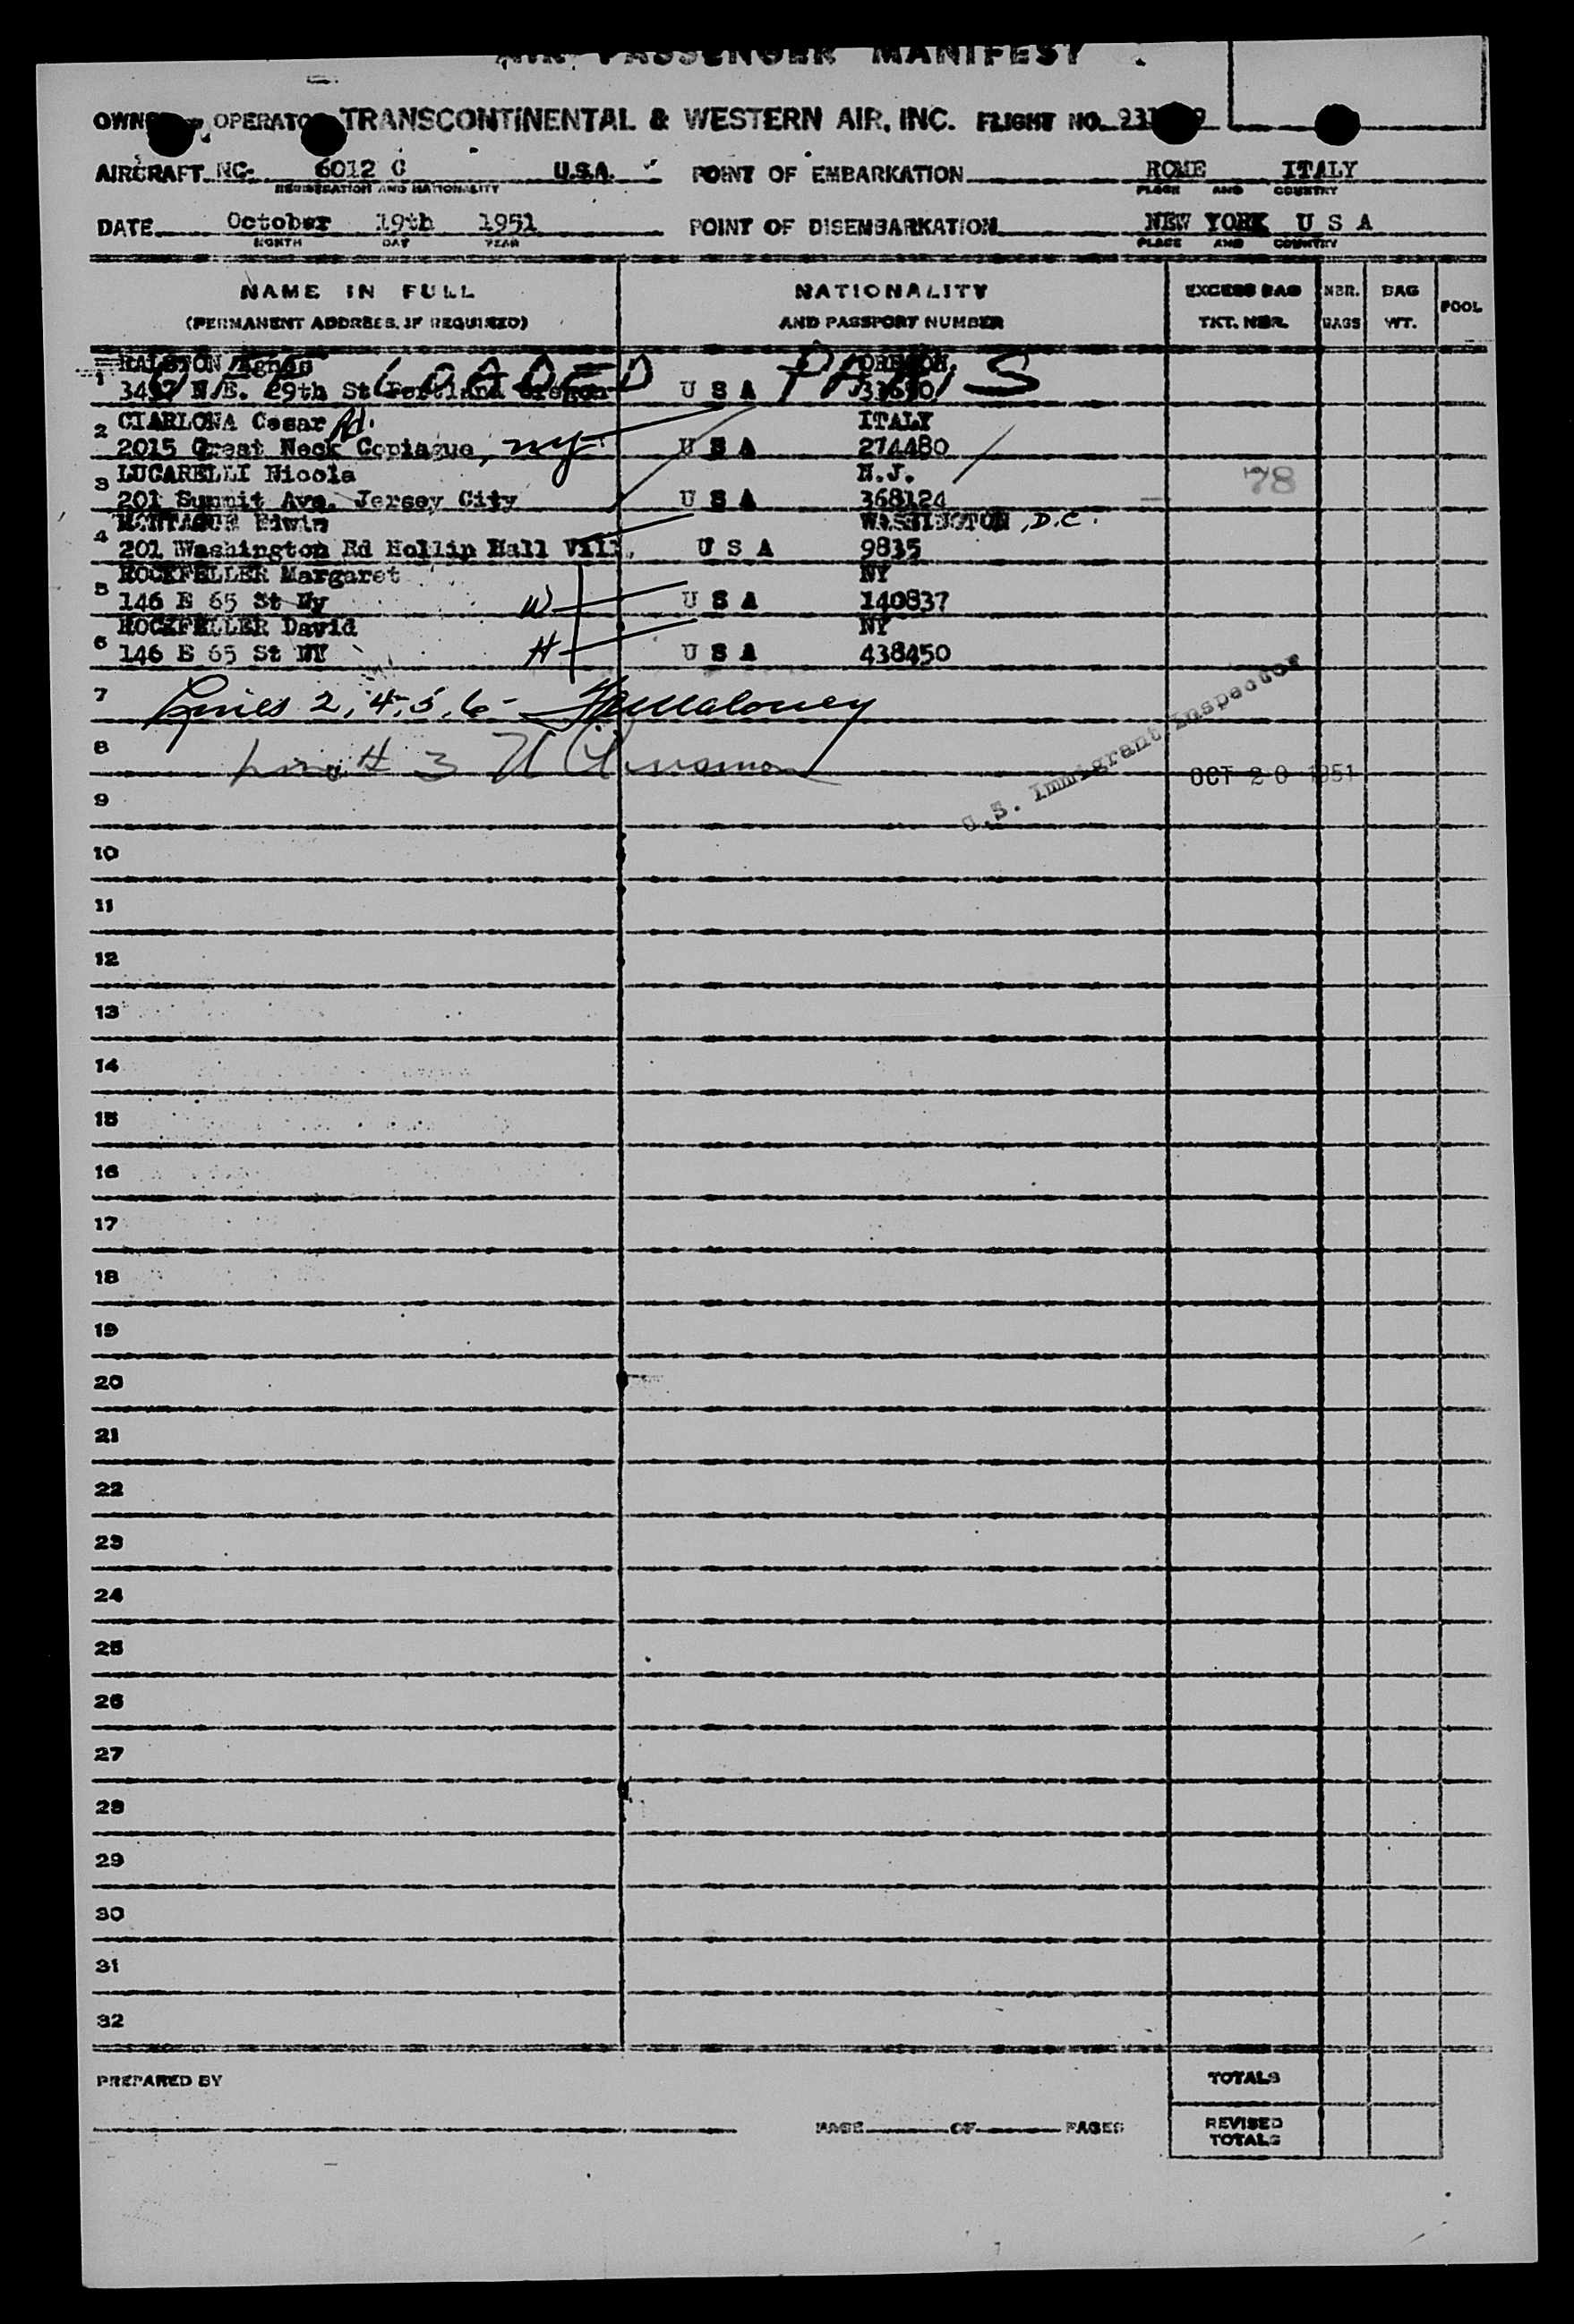 AIR PASSENGER MANIFEST
OPERATOR TRANSCONTINENTAL & WESTERN AIR, INC. FLIGHT NO.
AIRCRAFT NC- 6012 C U.S.A. POINT OF EMBARKATION ROME ITALY
REGISTRATION AND NATIONALITY PLACE AND COUNTRY
DATE October 19th 1951 POINT OF DISEMBARKATION NEW YORK U S A
MONTH DAY YEAR PLACE AND COUNTRY
NAME IN FULL NATIONALITY EXCESS BAG NBR. BAG POOL
(PERMANENT ADDRESS, IF REQUIRED) AND PASSPORT NUMBER TKT. NBR. BAGS WT.
RALSTON Agnes OREGON
1 N.E. 29th St Portland Oregon U S A
OFF LOADED PARIS
CIARLONA Cesar Rd. ITALY
2 2015 Great Neck Copiague, ny U S A 274480
LUCARELLI Nicola N.J.
3 201 Summit Ave. Jersey City U S A 368124 78
MONTAGUE Edwin WASHINGTON, D.C.
4 201 Washington Rd Hollin Hall Vill. U S A 9835
ROCKFELLER Margaret NY
5 146 E 65 St Ny W U S A 140837
ROCKFELLER David NY
6 146 E 65 St NY H U S A 438450
7 Lines 2, 4, 5, 6 - Maloney
8 Line # 3
U.S. Immigrant Inspector
OCT 20 1951
9
10
11
12
13
14
15
16
17
18
19
20
21
22
23
24
25
26
27
28
29
30
31
32
PREPARED BY TOTALS
PAGE OF PAGES REVISED
TOTALS